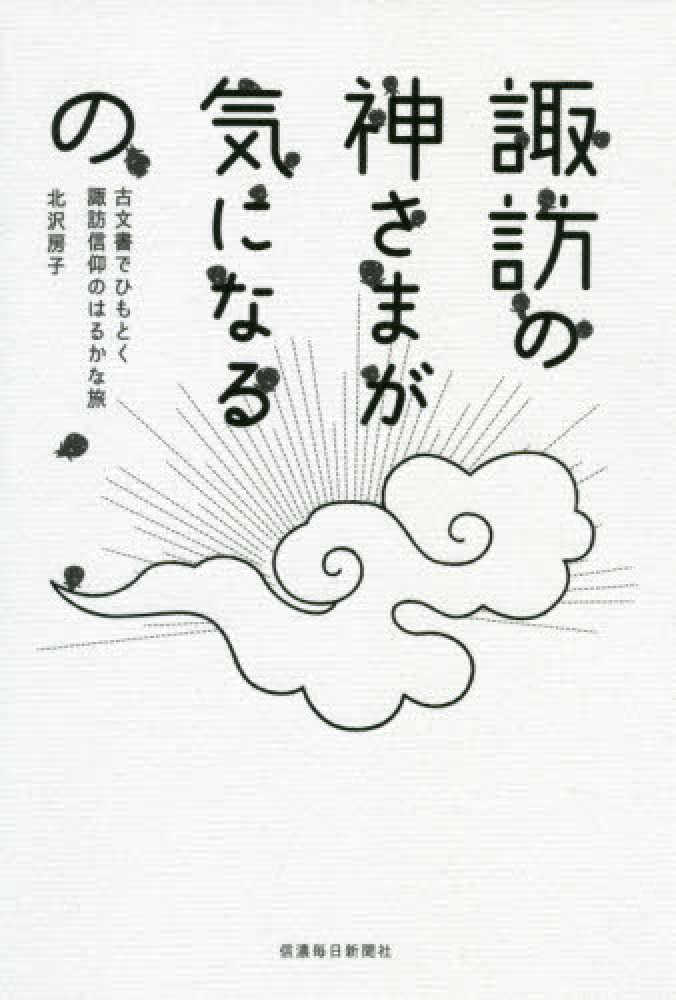 諏訪の
神さまが
気になる
の
古文書でひもとく
諏訪信仰のはるかな旅
北沢房子
信濃毎日新聞社